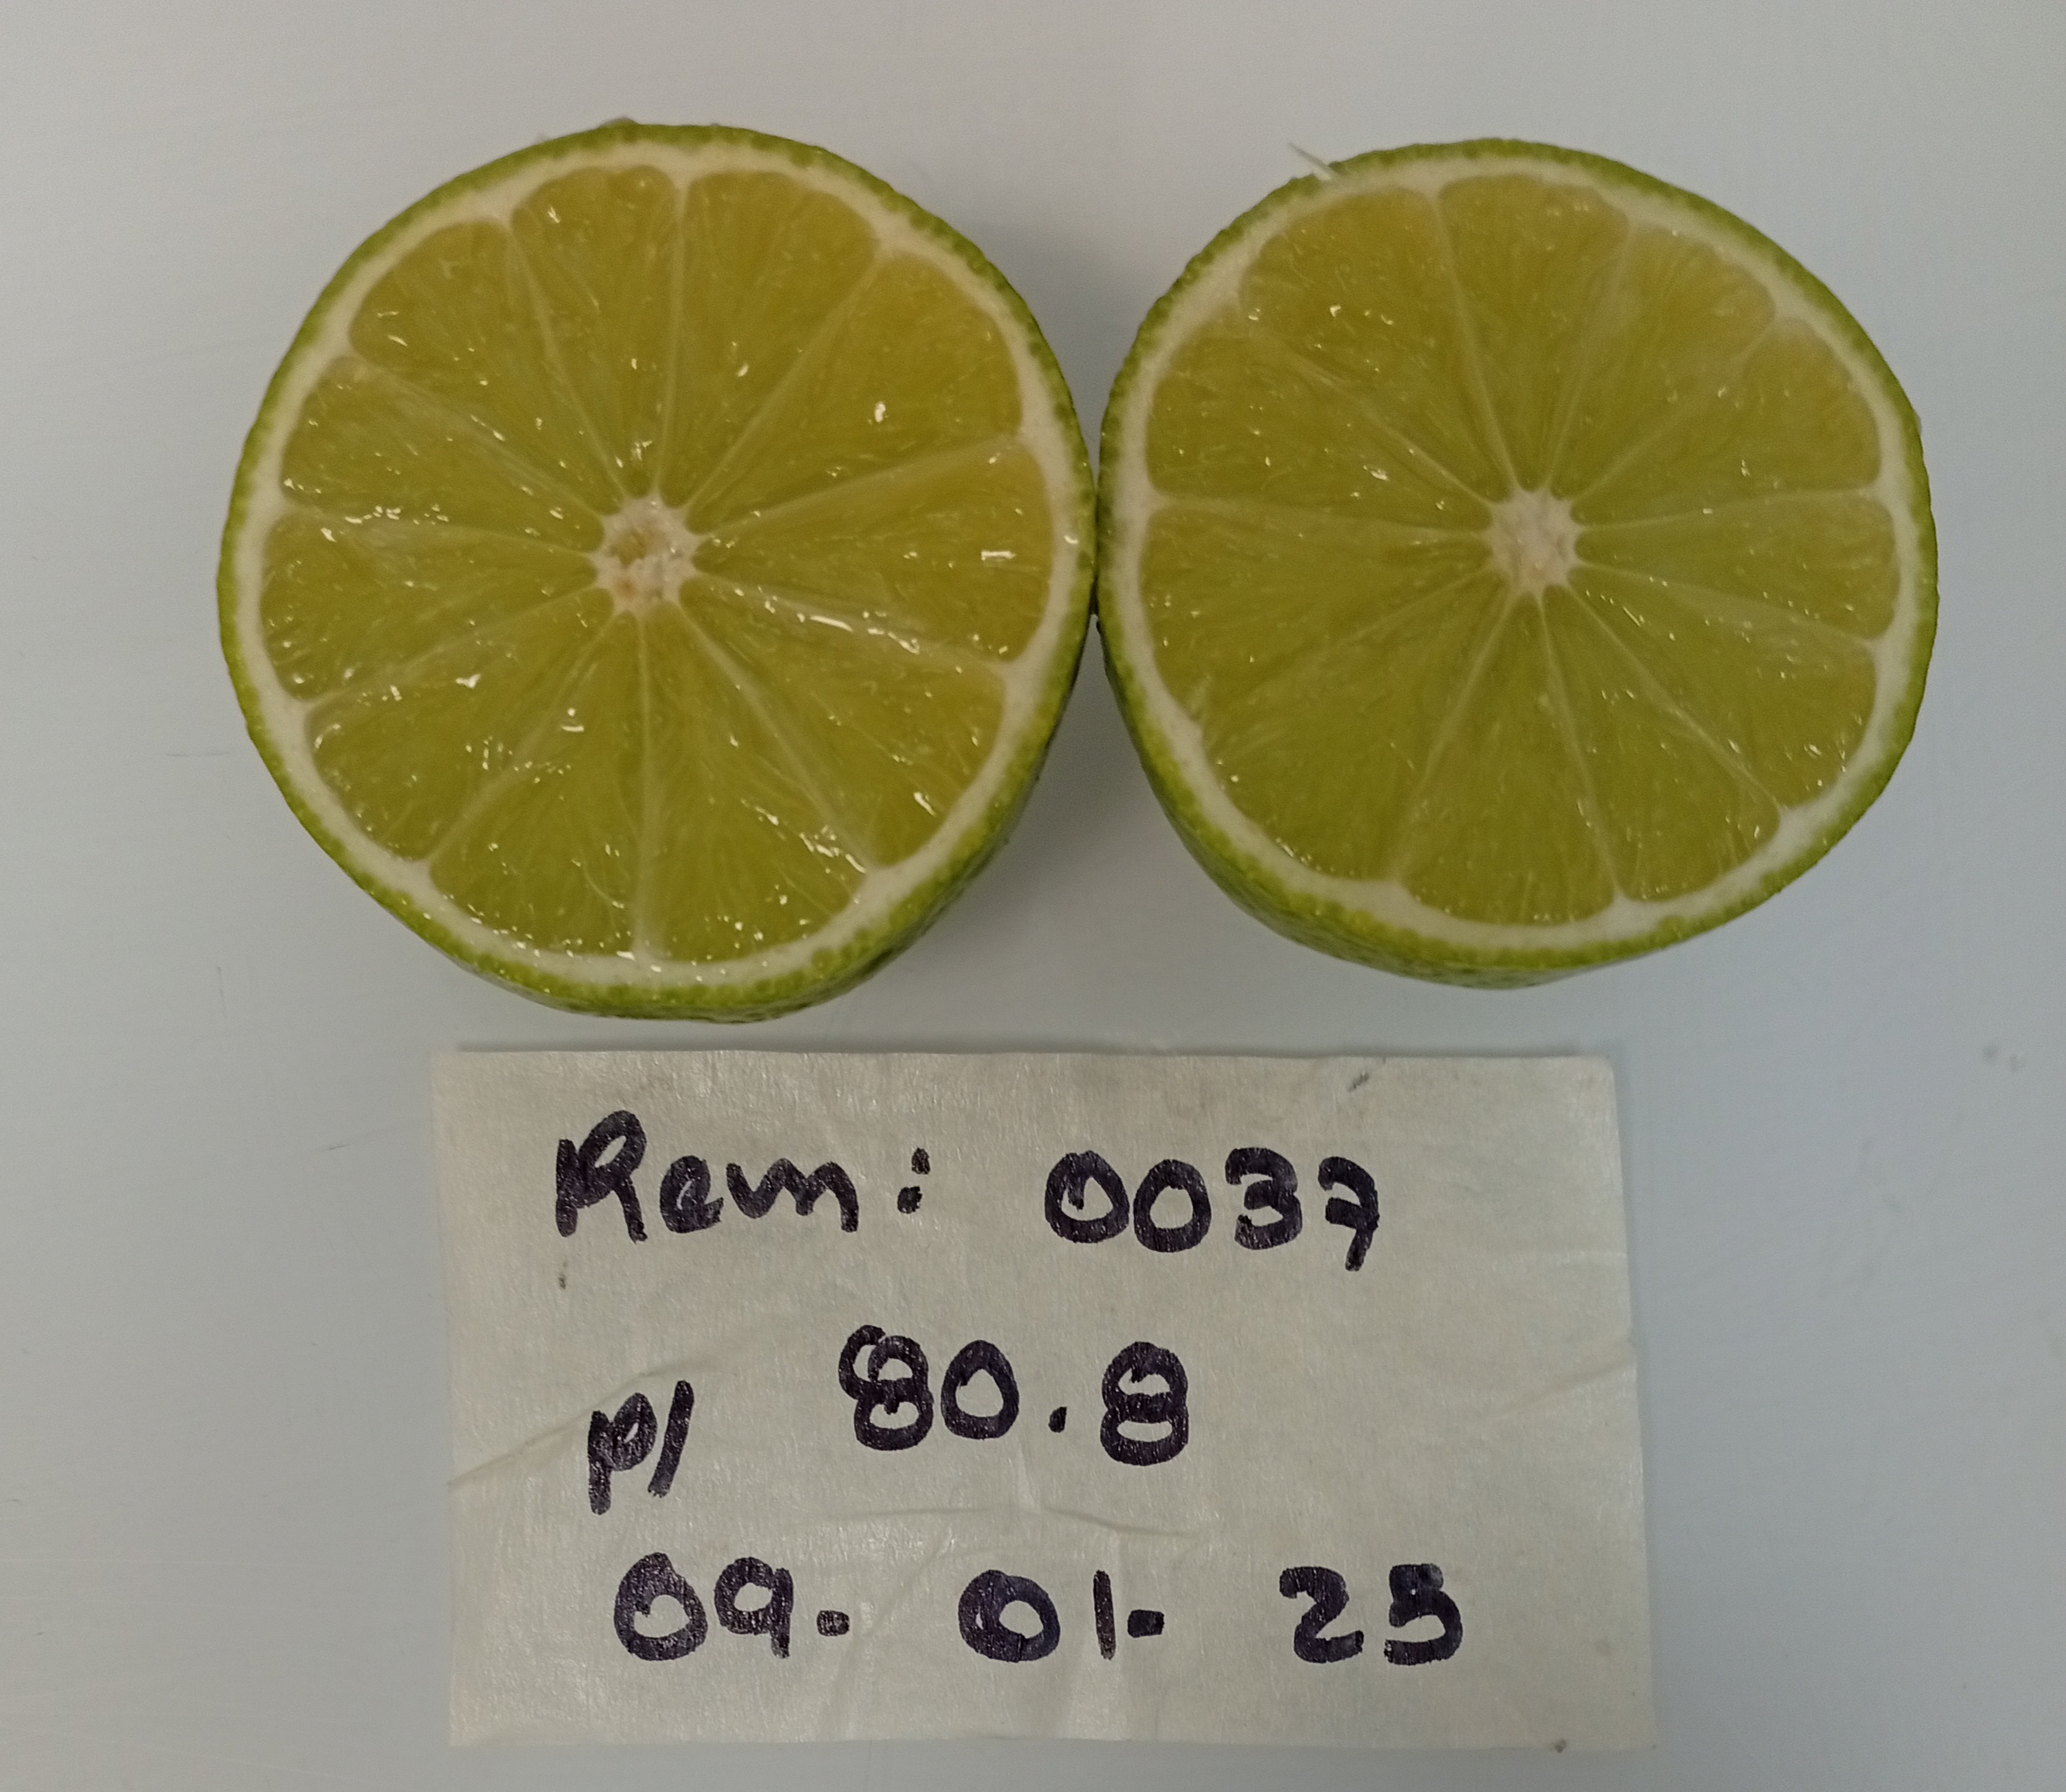 Rem: 0037
P/ 80.8
09. 01. 25